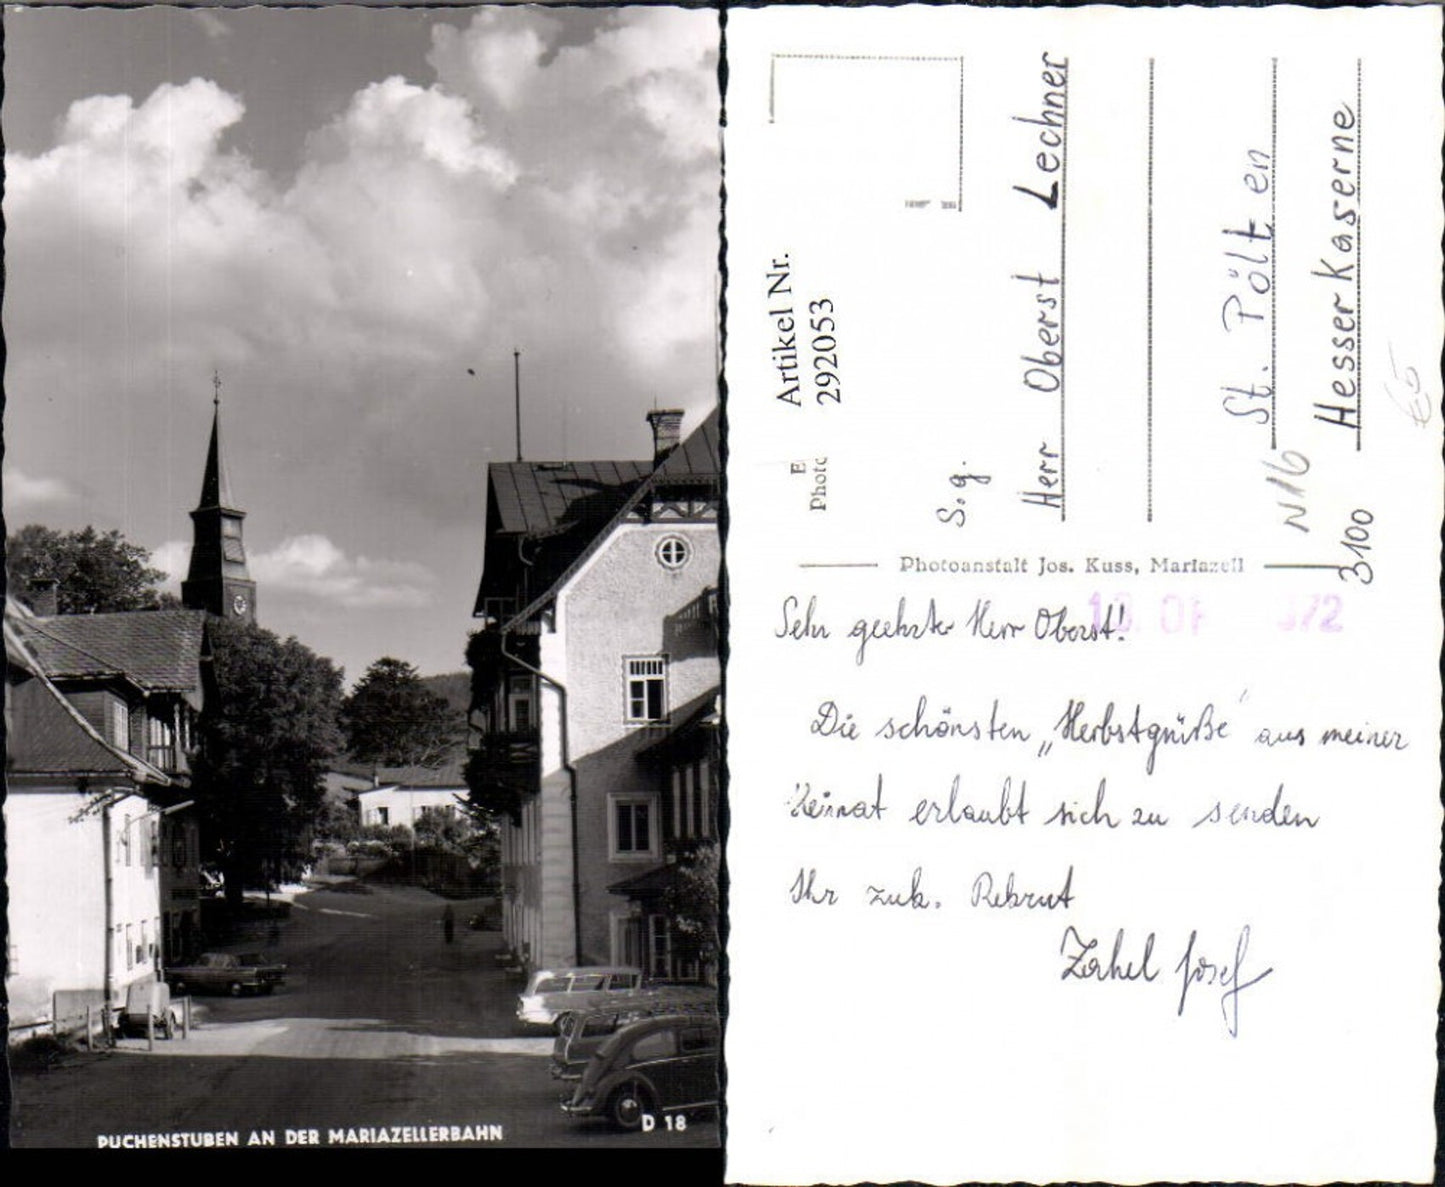 PUCHENSTUBEN AN DER MARIAZELLERBAHN
D 18
Artikel Nr.
292053
E
Photo
S.g.
Herr Oberst Lechner
St. Pölten
Hesser Kaserne
N16
3100
€5
Photoanstalt Jos. Kuss, Mariazell
Sehr geehrter Herr Oberst!
Die schönsten „Herbstgrüße" aus meiner
Heimat erlaubt sich zu senden
Ihr zuk. Rekrut
Zahel Josef